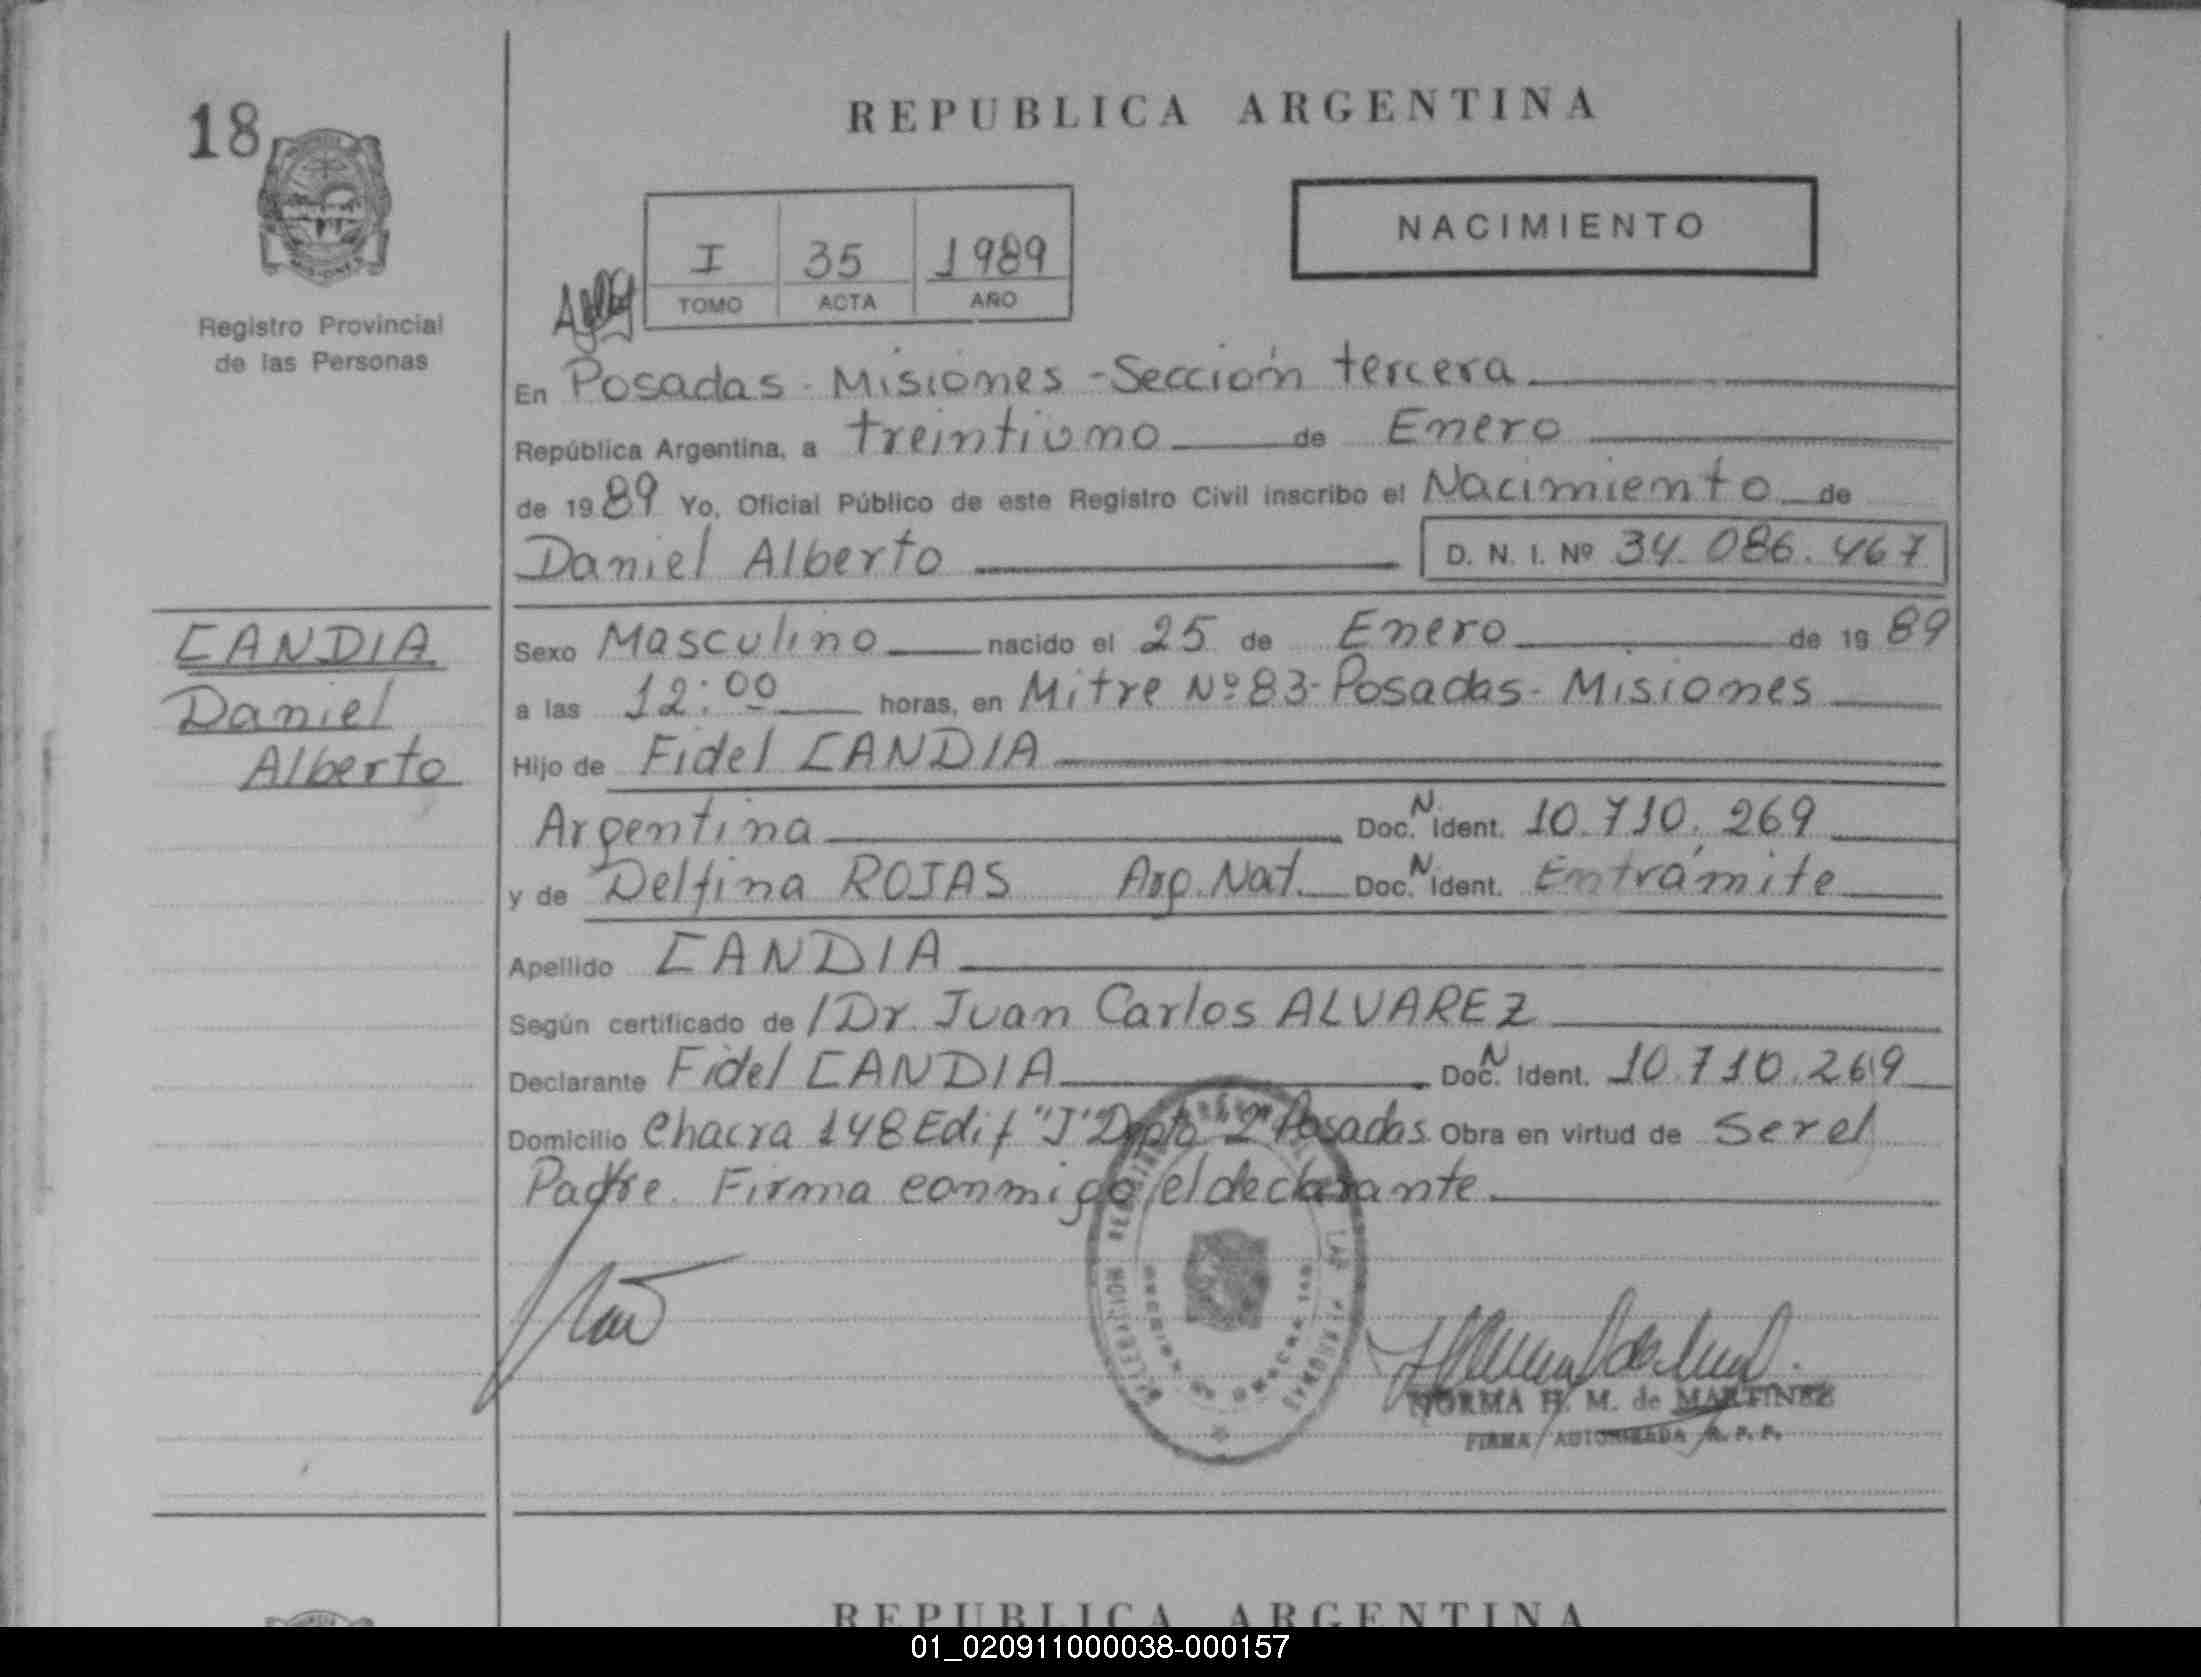 18
MISIONES
Registro Provincial
de las Personas
REPUBLICA ARGENTINA
NACIMIENTO
I 35 1989
TOMO ACTA AÑO
En Posadas - Misiones - Sección tercera
República Argentina, a treintiuno de Enero
de 1989 Yo, Oficial Público de este Registro Civil inscribo el Nacimiento de
Daniel Alberto D. N. I. Nº 34.086.467
CANDIA
Daniel
Alberto
Sexo Masculino nacido el 25 de Enero de 1989
a las 12:00 horas, en Mitre Nº 83 - Posadas - Misiones
Hijo de Fidel CANDIA
Argentina Doc. N. Ident. 10.710.269
y de Delfina ROJAS Arg. Nat. Doc. N. Ident. En trámite
Apellido CANDIA
Según certificado de /Dr. Juan Carlos ALVAREZ
Declarante Fidel CANDIA Doc. N. Ident. 10.710.269
Domicilio Chacra 148 Edif "J" Dpto 2º Posadas Obra en virtud de Ser el
Padre. Firma conmigo el declarante
NORMA H. M. de MARTINEZ
FIRMA AUTORIZADA R. P. P.
REPUBLICA ARGENTINA
01_020911000038-000157